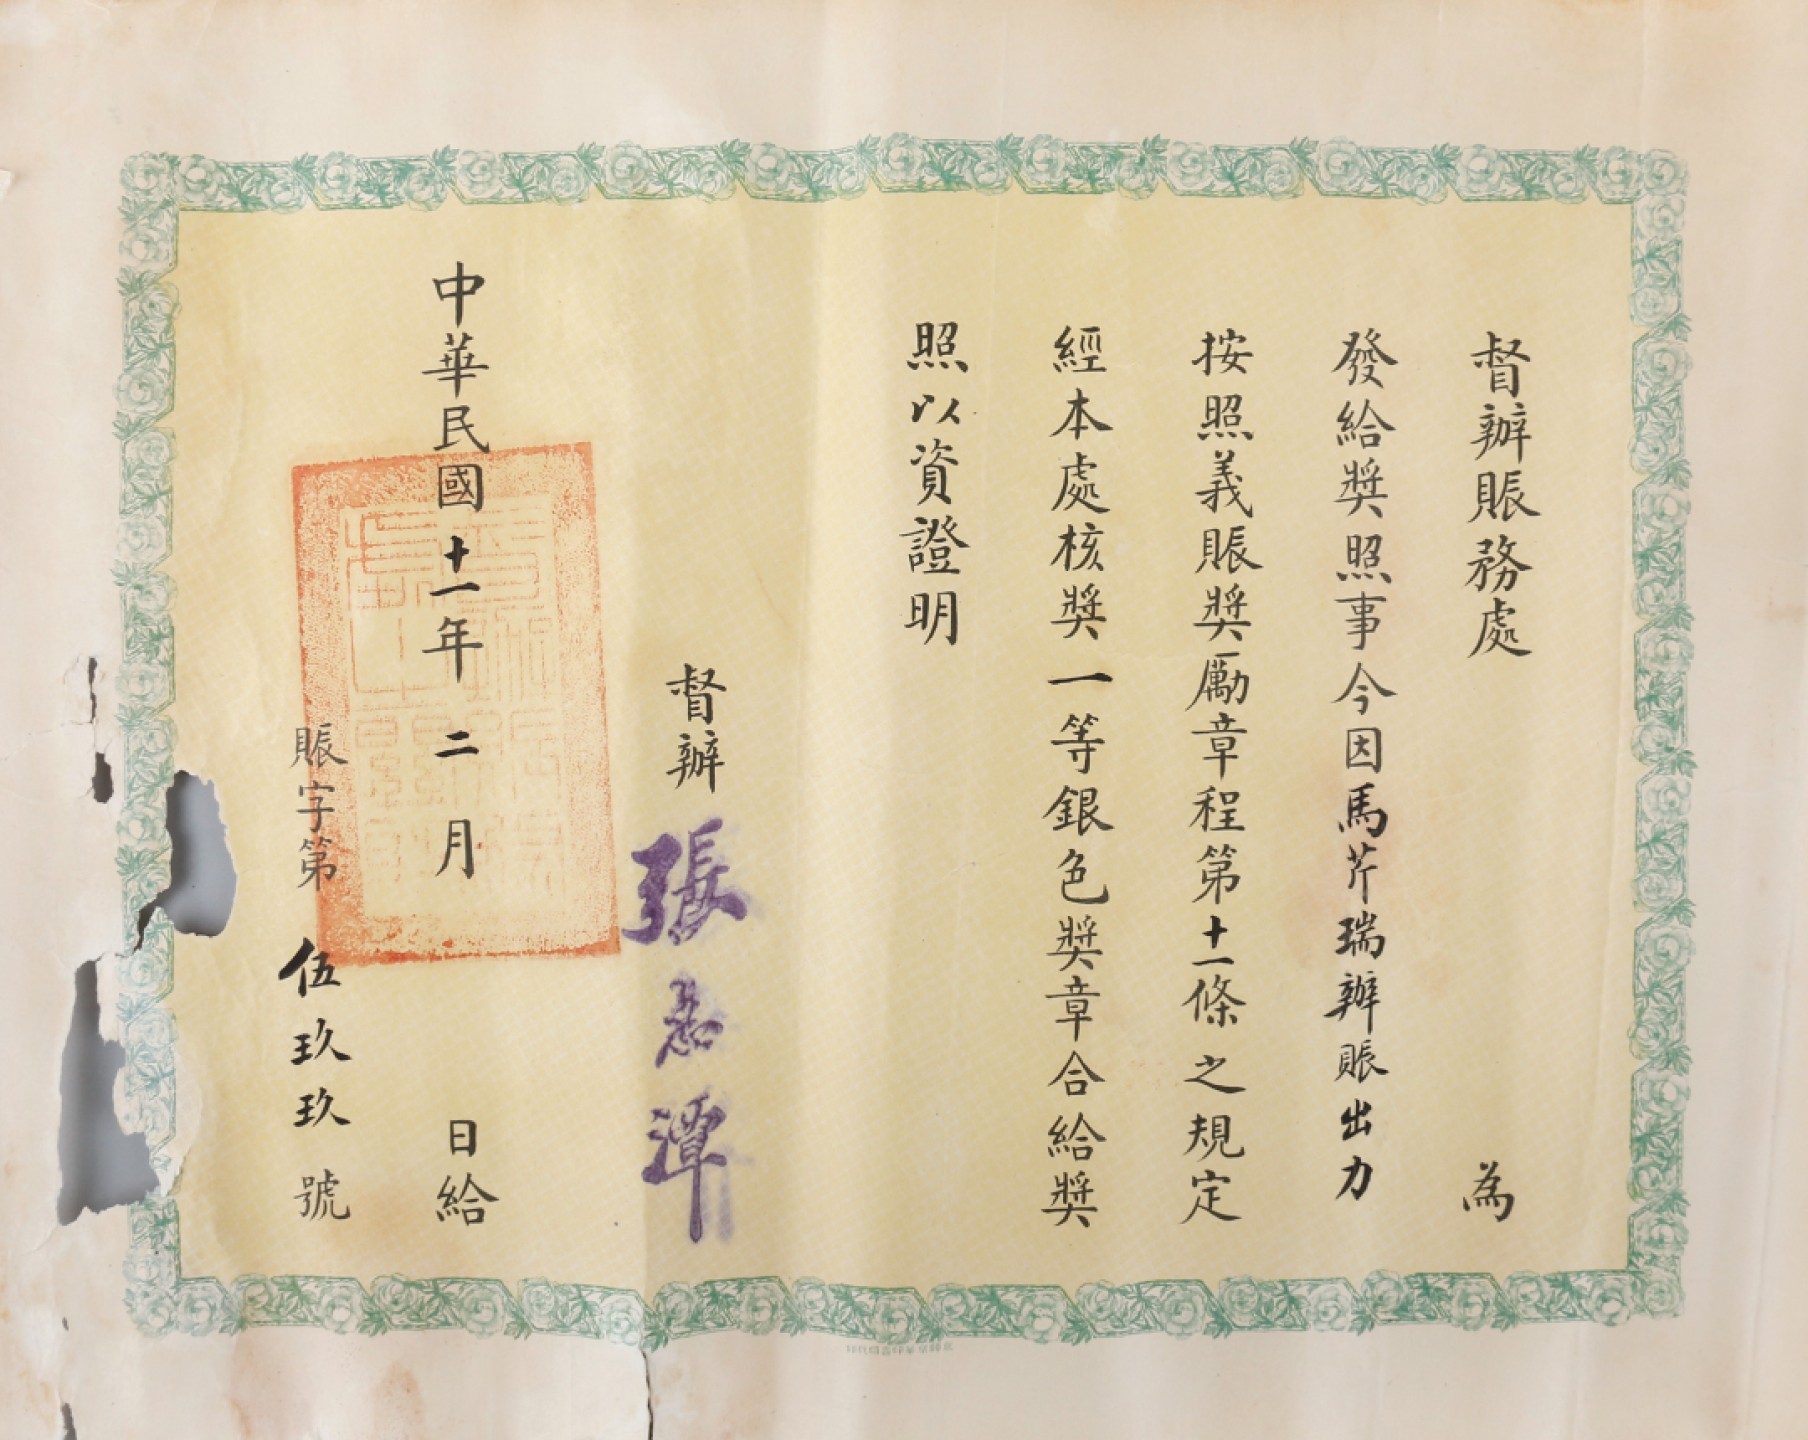 督辦賑務處 為
發給獎照事今因馬芹瑞辦賑出力
按照義賑獎勵章程第十一條之規定
經本處核獎一等銀色獎章合給獎
照以資證明
督辦 張志潭
中華民國十一年二月 日給
賑字第伍玖玖號